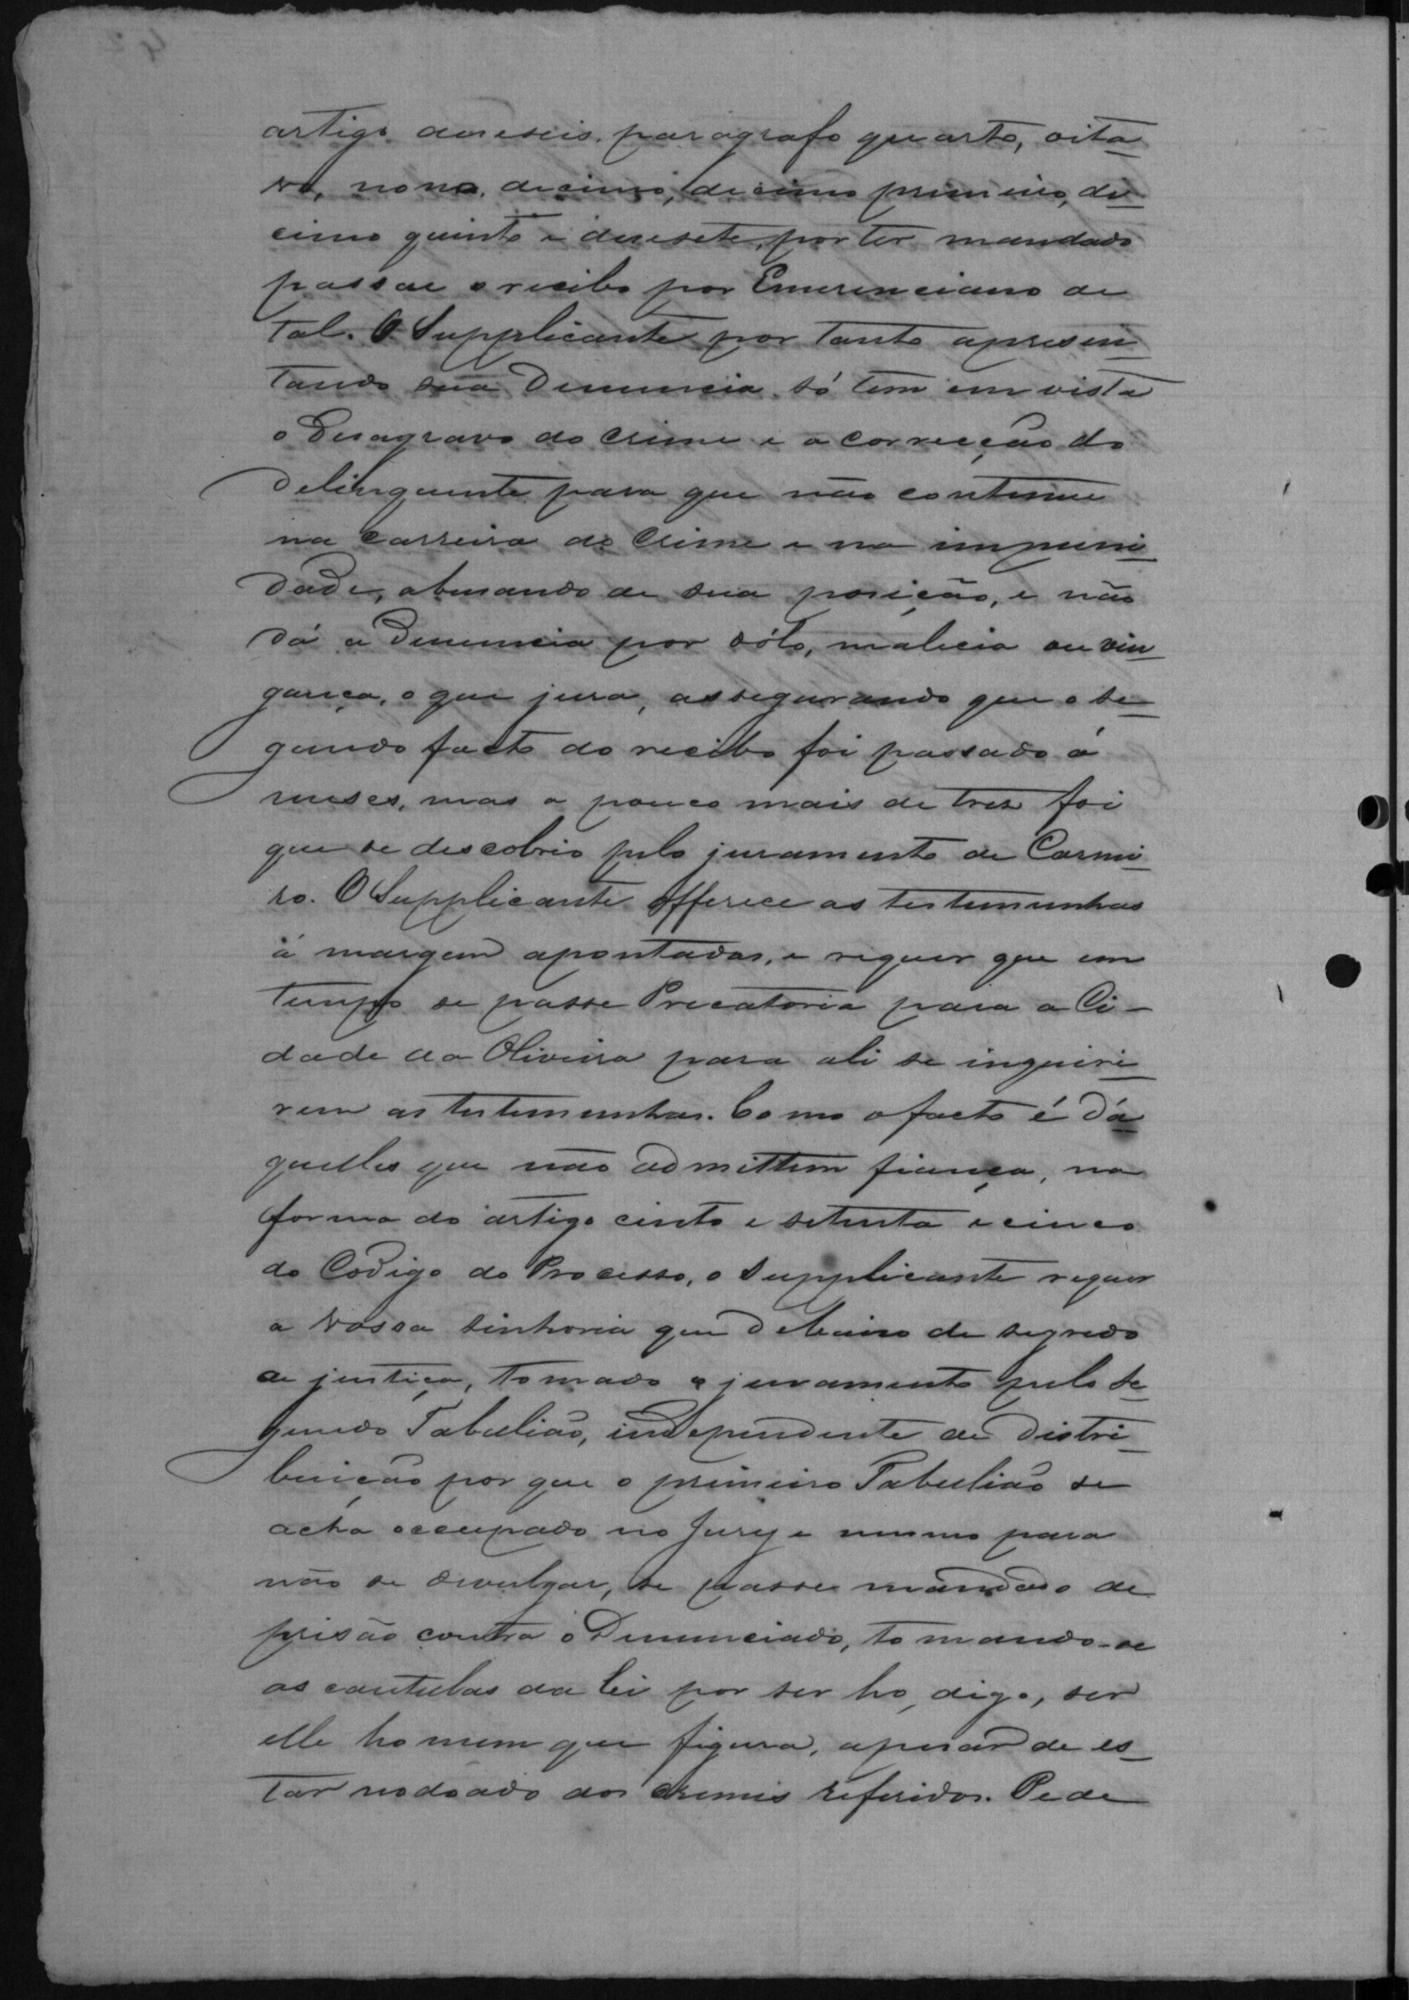 artigo deseseis, paragrafo quarto, oita-
vo, nono, decimo, decimo primeiro, de-
cimo quinto e desesete, por ter mandado
passar o recibo por Emerenciano de
tal. O Supplicante por tanto apresen-
tando sua Denuncia, só tem em vista
o Desagravo do crime e a correcção do
Delinquente para que não continue
na carreira do crime e na impuni-
dade, abusando de sua posição, e não
dá a Denuncia por dólo, malicia ou vin-
gança, o que jura, assegurando que o se-
gundo facto do recibo foi passado á
meses, mas a pouco mais de tres foi
que se descobrio pelo juramento de Carmi-
ro. O Supplicante offerece as testemunhas
á margem apontadas, e requer que em
tempo se passe Precatoria para a Ci-
dade da Oliveira para ali se inquiri-
rem as testemunhas. Como o facto é dá-
quelles que não admittem fiança, na
forma do artigo cento e setenta e cinco
do Codigo do Processo, o Supplicante requer
a Vossa Senhoria que debaixo de segredo
de justiça, tomado o juramento pelo Se-
gundo Tabelião, independente de distri-
buição por que o primeiro Tabelião se
acha occupado no Jury e mesmo para
não se divulgar, se passe mandado de
prisão contra o Denunciado, tomando-se
as cautelas da lei por ser ho, digo, ser
elle homem que figura, apesar de es-
tar nodoado dos crimes referidos. Pede